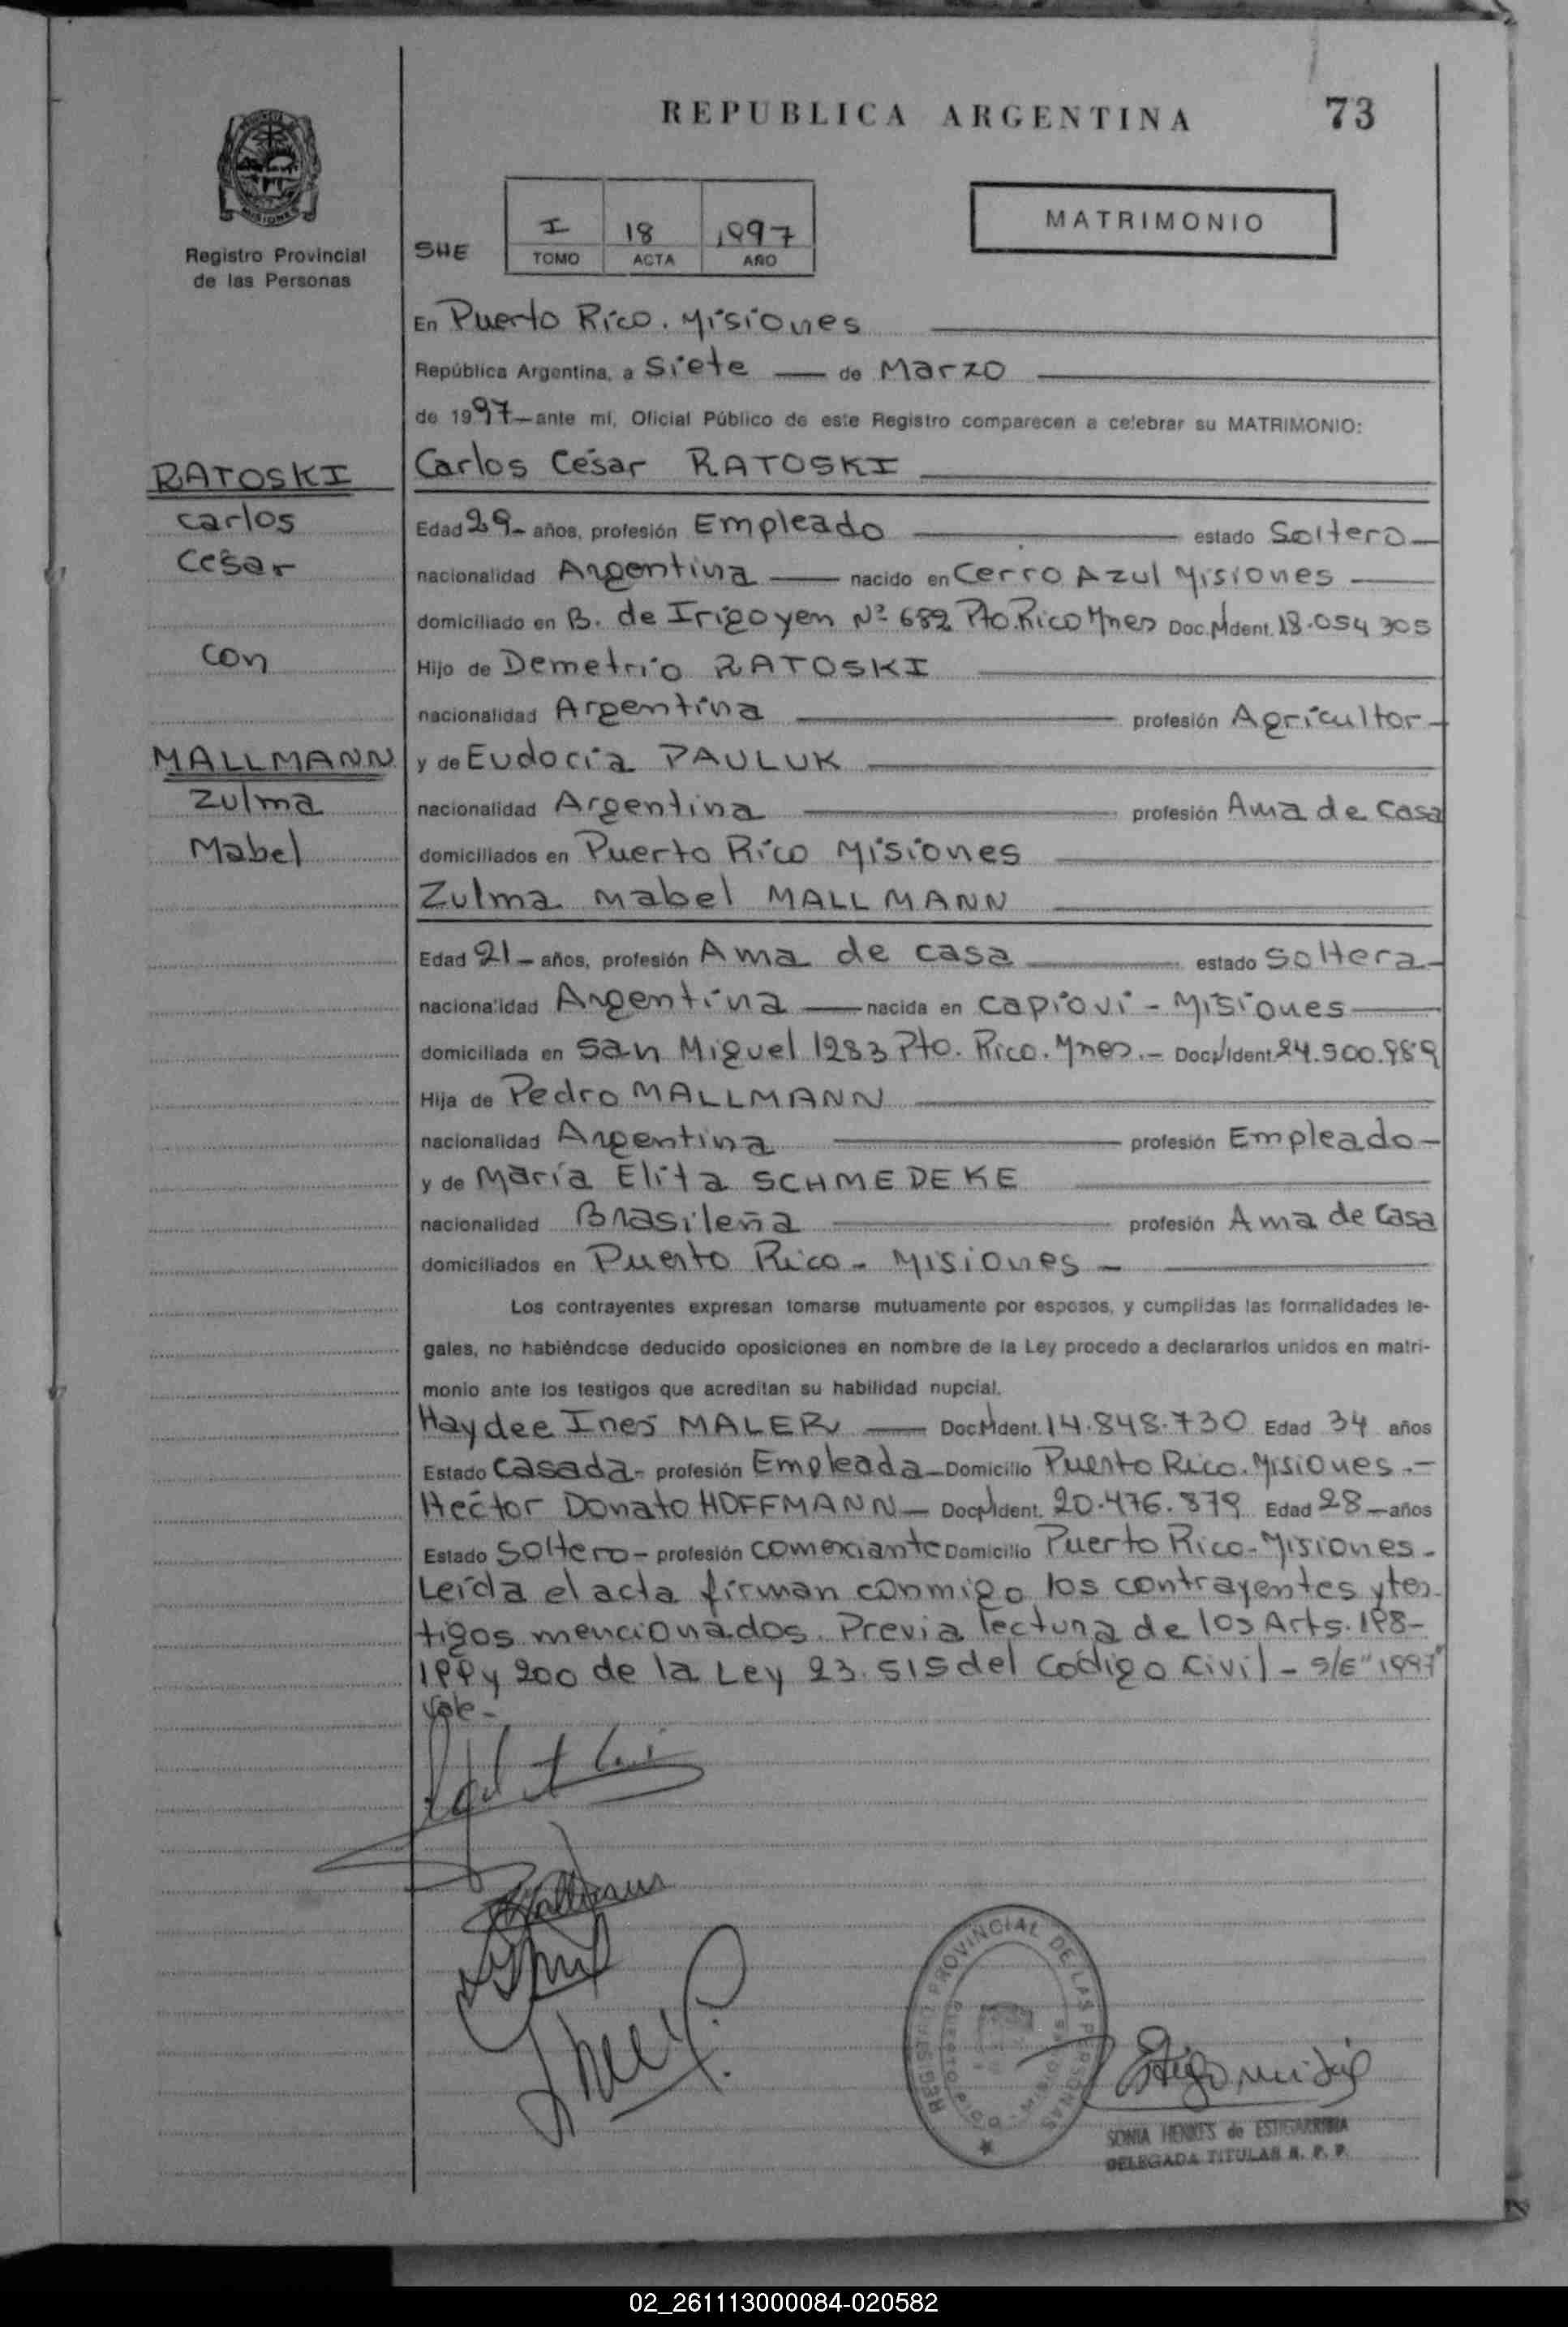 REPUBLICA ARGENTINA 73
MISIONES
Registro Provincial
de las Personas
SHE
I 18 1997
TOMO ACTA AÑO
MATRIMONIO
En Puerto Rico. Misiones
República Argentina, a Siete — de Marzo
de 1997— ante mí, Oficial Público de este Registro comparecen a celebrar su MATRIMONIO:
Carlos César RATOSKI
RATOSKI
Carlos
César
con
MALLMANN
Zulma
Mabel
Edad 29- años, profesión Empleado — estado Soltero—
nacionalidad Argentina — nacido en Cerro Azul Misiones —
domiciliado en B. de Irigoyen Nº 682 Pto. Rico Mnes Doc. Ident. 18.054 305
Hijo de Demetrio RATOSKI
nacionalidad Argentina — profesión Agricultor-
y de Eudocia PAULUK
nacionalidad Argentina — profesión Ama de Casa
domiciliados en Puerto Rico Misiones
Zulma Mabel MALLMANN
Edad 21- años, profesión Ama de casa — estado Soltera-
nacionalidad Argentina — nacida en Capioví - Misiones —
domiciliada en San Miguel 1283 Pto. Rico. Mnes.- Doc. Ident. 24.900.989
Hija de Pedro MALLMANN
nacionalidad Argentina — profesión Empleado-
y de María Elita SCHMEDEKE
nacionalidad Brasileña — profesión Ama de Casa
domiciliados en Puerto Rico - Misiones -
Los contrayentes expresan tomarse mutuamente por esposos, y cumplidas las formalidades le-
gales, no habiéndose deducido oposiciones en nombre de la Ley procedo a declararlos unidos en matri-
monio ante los testigos que acreditan su habilidad nupcial.
Haydee Ines MALER — Doc. Ident. 14.848.730 Edad 34 años
Estado Casada- profesión Empleada- Domicilio Puerto Rico. Misiones.-
Héctor Donato HOFFMANN — Doc. Ident. 20.476.879 Edad 28— años
Estado Soltero- profesión comerciante Domicilio Puerto Rico- Misiones-
Leída el acta firman conmigo los contrayentes y tes-
tigos mencionados. Previa lectura de los Arts. 198-
199 y 200 de la Ley 23.515 del Código Civil - S/E "1997"
Vale-
REGISTRO PROVINCIAL DE LAS PERSONAS
PUERTO RICO - MISIONES
SONIA HENKES de ESTIGARRIBIA
DELEGADA TITULAR R. P. P.
02_261113000084-020582